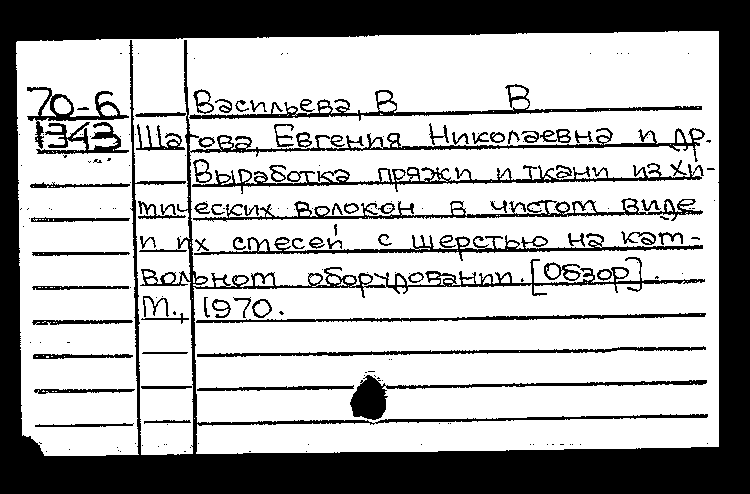 70-6 Васильева, В В
1343 Шагова, Евгения Николаевна и др.
Выработка пряжи и ткани из хи-
мических волокон в чистом виде
и их смесей с шерстью на кам-
вольном оборудовании. [Обзор].
М., 1970.